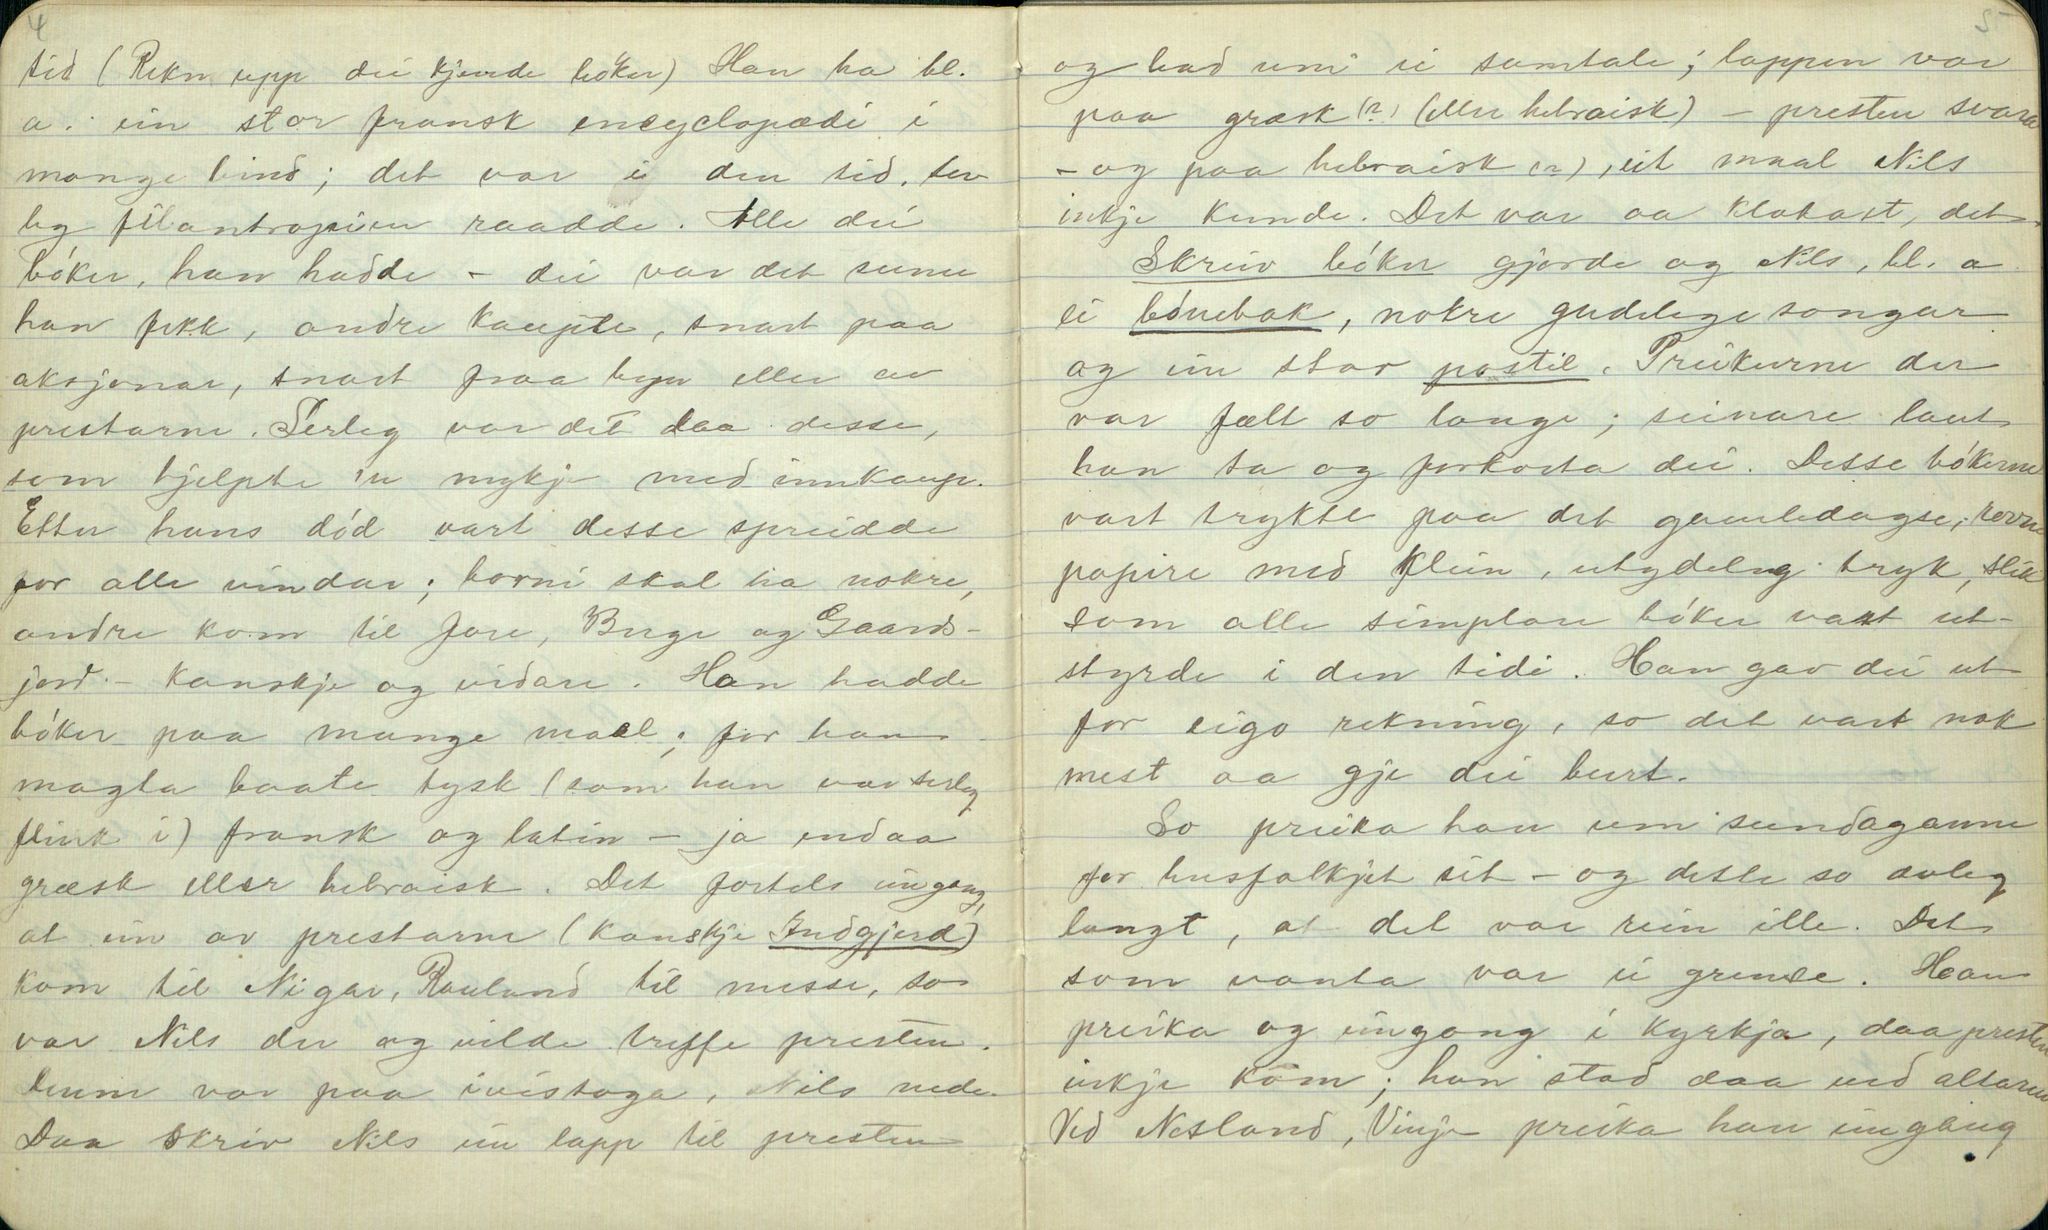 4
tid (Rekn upp dei kjende bóker) Han ha bl.
a. ein stor fransk encyclopædi i
mange bind; det var i den tid, sev
leg filantropien raadde. Alle dei
bóker, han hadde – dei var det sume
han fekk, andre kaupte, snart paa
aksjonar, snart fraa byen eller av
prestarne. Serleg var det daa desse,
som hjelpte 'n mykje med innkaup.
Etter hans dód vart desse spreidde
for alle vindar; borni skal ha nokre,
andre kom til Jore, Berge og Gaards-
jord – kanskje og vidare. Han hadde
bóker paa mange maal; for han
magta baate tysk (som han var serleg
flink i) fransk og latin – ja endaa
græsk eller hebraisk. Det fortels eingong,
at ein av prestarne (kanskje Indgjerd)
kom til Nigar, Rauland til messe, so
var Nils der og vilde treffe presten.
Denne var paa ivistoga, Nils nede.
Daa skriv Nils ein lapp til presten
5
og bad um ei samtale; lappen var
paa græsk (?) (eller hebraisk) – presten svara
– og paa hebraisk (?), eit maal Nils
inkje kunde. Det var aa klokast, det.
Skreiv bóker gjorde og Nils, bl. a
ei bónebok, nokre gudelege songar
og ein stor postil. Preikurne der
var fælt so lange; seinare laut
han ta og forkorta dei. Desse bókerne
vart trykte paa det gamledagse,
papire med klein, utydeleg tryk, slik
som alle simplare bóker vart ut-
styrde i den tidi. Han gav dei ut
for eigo rekning, so det vart nok
mest aa gje dei burt.
So preika han um sundaganne
for husfolkjet sit – og dette so ovleg
langt, at det var rein ille. Det
som vanta var ei grende. Han
preika og eingong i kyrkja, daa presten
inkje kom; han stod daa ved altaren
Ved Nesland, Vinje preika han eingang